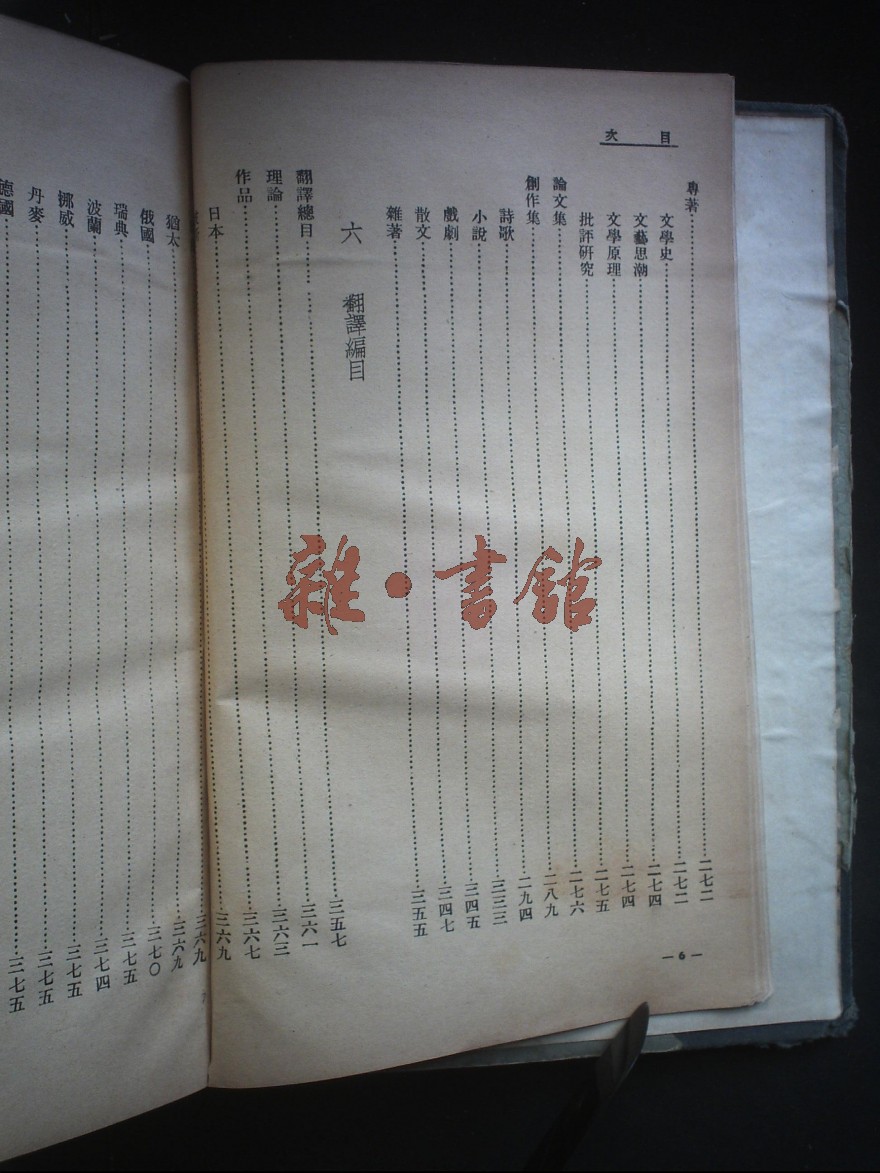 目次
專著 二七二
文學史 二七二
文藝思潮 二七四
文學原理 二七四
批評研究 二七五
論文集 二七六
創作集 二八九
詩歌 二九四
小說 三三三
戲劇 三四五
散文 三四七
雜著 三五五
六 翻譯編目
翻譯總目 三五七
理論 三六一
作品 三六三
日本 三六七
三六九
三六九
猶太 三六九
俄國 三七〇
瑞典 三七五
波蘭 三七四
挪威 三七五
丹麥 三七五
德國 三七五
—6—
雜·書館